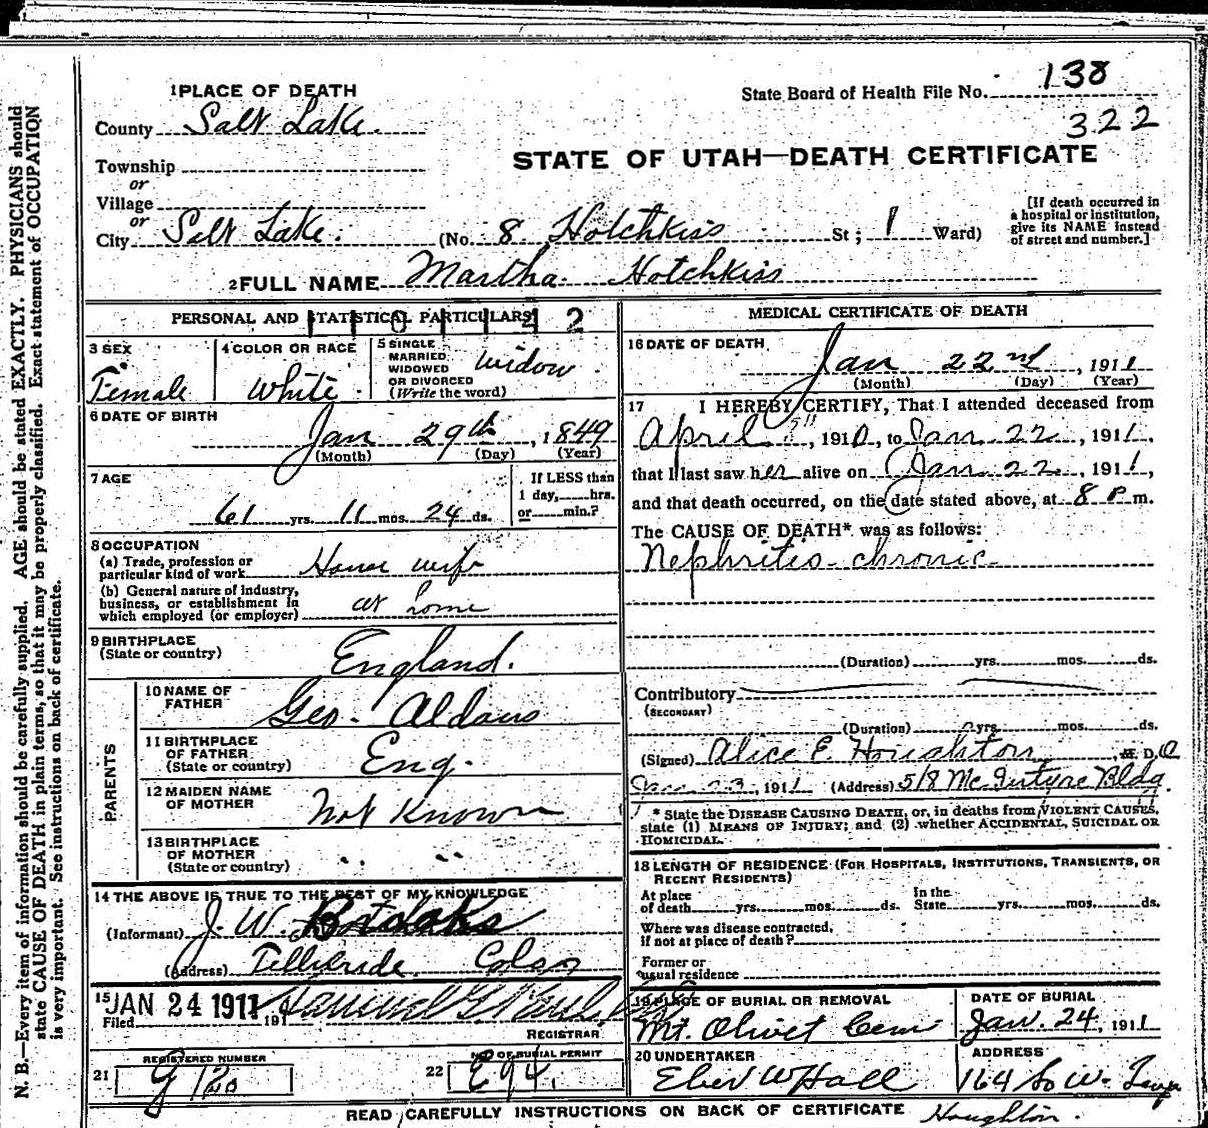 1 PLACE OF DEATH
State Board of Health File No. 138
County Salt Lake.
322
STATE OF UTAH—DEATH CERTIFICATE
Township
or
Village
or
City Salt Lake. (No. 8 Hotchkiss St; 1 Ward)
[If death occurred in
a hospital or institution,
give its NAME instead
of street and number.]
2 FULL NAME Martha Hotchkiss
PERSONAL AND STATISTICAL PARTICULARS
3 SEX
Female
4 COLOR OR RACE
White
5 SINGLE
MARRIED
WIDOWED
OR DIVORCED
(Write the word)
Widow
6 DATE OF BIRTH
Jan 29th, 1849
(Month) (Day) (Year)
7 AGE
61 yrs. 11 mos. 24 ds.
If LESS than
1 day, hrs.
or min.?
8 OCCUPATION
(a) Trade, profession or
particular kind of work House wife
(b) General nature of industry,
business, or establishment in
which employed (or employer) at home
9 BIRTHPLACE
(State or country)
England.
PARENTS
10 NAME OF
FATHER
Geo. Aldous
11 BIRTHPLACE
OF FATHER
(State or country)
Eng.
12 MAIDEN NAME
OF MOTHER
Not Known
13 BIRTHPLACE
OF MOTHER
(State or country)
" "
14 THE ABOVE IS TRUE TO THE BEST OF MY KNOWLEDGE
(Informant) J. W.
(Address) Telluride Colo
15 JAN 24 1911
Filed 191
REGISTRAR
REGISTERED NUMBER
21 G 120
NO OF BURIAL PERMIT
22 E 94.
MEDICAL CERTIFICATE OF DEATH
16 DATE OF DEATH
Jan 22nd, 1911
(Month) (Day) (Year)
17 I HEREBY CERTIFY, That I attended deceased from
April 5th, 1910, to Jan 22, 1911,
that I last saw her alive on Jan 22, 1911,
and that death occurred, on the date stated above, at 8 P m.
The CAUSE OF DEATH* was as follows:
Nephritis - chronic
(Duration) yrs. mos. ds.
Contributory
(SECONDARY)
(Duration) yrs. mos. ds.
(Signed) Alice E. Houghton, M. D. O
Jan 23, 1911 (Address) 518 McIntyre Bldg
* State the DISEASE CAUSING DEATH, or, in deaths from VIOLENT CAUSES,
state (1) MEANS OF INJURY; and (2) whether ACCIDENTAL, SUICIDAL OR
HOMICIDAL.
18 LENGTH OF RESIDENCE (FOR HOSPITALS, INSTITUTIONS, TRANSIENTS, OR
RECENT RESIDENTS)
At place
of death yrs. mos. ds.
In the
State yrs. mos. ds.
Where was disease contracted,
if not at place of death?
Former or
usual residence
19 PLACE OF BURIAL OR REMOVAL
Mt. Olivet Cem
DATE OF BURIAL
Jan. 24, 1911
20 UNDERTAKER
Eber W Hall
ADDRESS
164 So W. Temp
READ CAREFULLY INSTRUCTIONS ON BACK OF CERTIFICATE Houghton.
N. B.—Every item of information should be carefully supplied. AGE should be stated EXACTLY. PHYSICIANS should
state CAUSE OF DEATH in plain terms, so that it may be properly classified. Exact statement of OCCUPATION
is very important. See instructions on back of certificate.